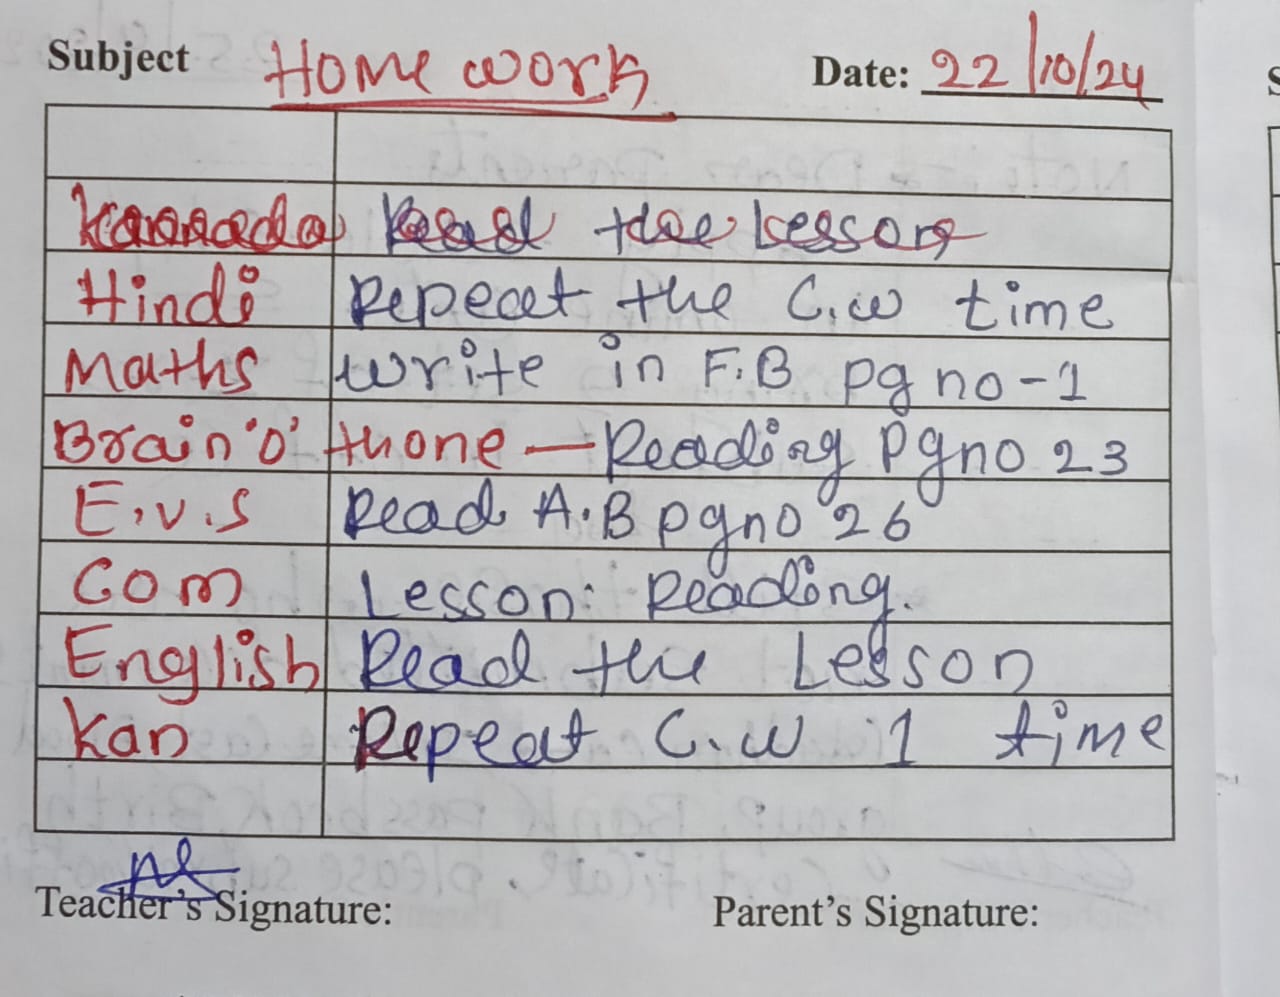 Subject Home work Date: 22/10/24
Kannada Read the Lesson
Hindi Repeat the C.w time
Maths write in F.B pg no-1
Brain 'O' thone — Reading Pgno 23
E.v.s Read A.B pgno 26
Com Lesson: Reading.
English Read the Lesson
Kan Repeat C.w 1 time
Teacher's Signature: Parent's Signature: